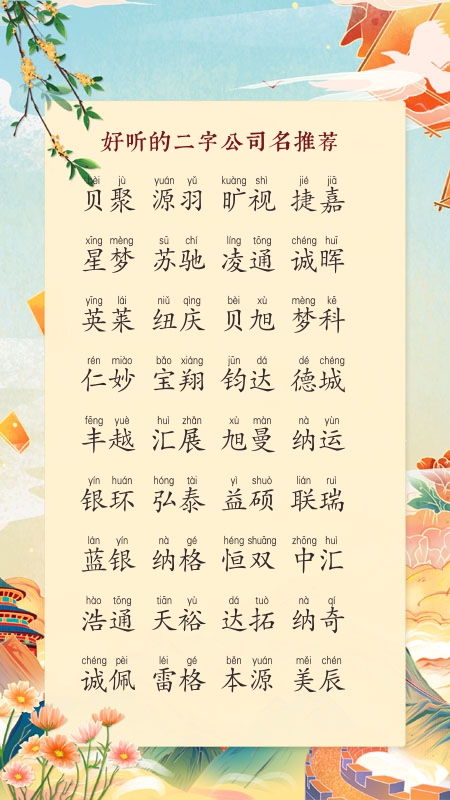 好听的二字公司名推荐
bèi jù yuán yǔ kuàng shì jié jiā
贝聚 源羽 旷视 捷嘉
xīng mèng sū chí líng tōng chéng huī
星梦 苏驰 凌通 诚晖
yīng lái niǔ qìng bèi xù mèng kē
英莱 纽庆 贝旭 梦科
rén miào bǎo xiáng jūn dá dé chéng
仁妙 宝翔 钧达 德城
fēng yuè huì zhǎn xù màn nà yùn
丰越 汇展 旭曼 纳运
yín huán hóng tài yì shuò lián ruì
银环 弘泰 益硕 联瑞
lán yín nà gé héng shuāng zhōng huì
蓝银 纳格 恒双 中汇
hào tōng tiān yù dá tuò nà qí
浩通 天裕 达拓 纳奇
chéng pèi léi gé běn yuán měi chén
诚佩 雷格 本源 美辰